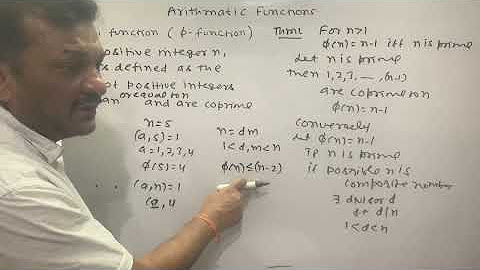 Arithmatic Functions
function (φ-function)
positive integer n,
s defined as the
positive integers
or equal to n
an and are coprime
n=5
(a,5)=1
a=1,2,3,4
φ(5)=4
(a,n)=1
n=dm
1<d,m<n
φ(n)≤(n-2)
Thm1 For n>1
φ(n)=n-1 iff n is prime
Let n is prime
then 1,2,3,---,(n-1)
are coprime to n
φ(n)=n-1
Conversely
let φ(n)=n-1
TP n is prime
if possible n is
composite number
∃ divisor d
d|n
1<d<n